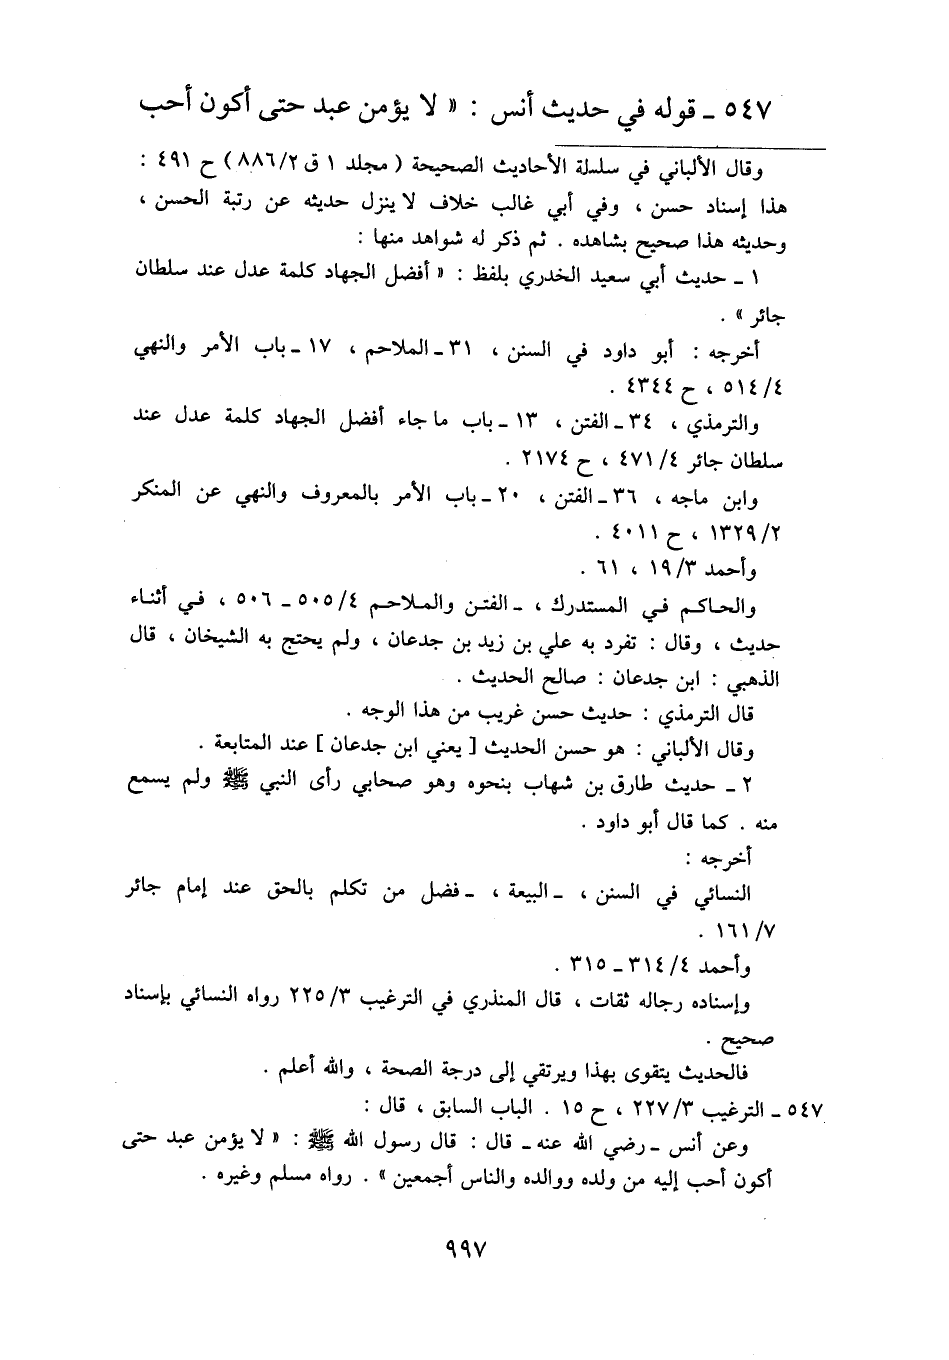 ٥٤٧ ـ قوله في حديث أنس : « لا يؤمن عبد حتى أكون أحب
وقال الألباني في سلسلة الأحاديث الصحيحة ( مجلد ١ ق ٨٨٦/٢ ) ح ٤٩١ :
هذا إسناد حسن ، وفي أبي غالب خلاف لا ينزل حديثه عن رتبة الحسن ،
وحديثه هذا صحيح بشاهده . ثم ذكر له شواهد منها :
١ ـ حديث أبي سعيد الخدري بلفظ : « أفضل الجهاد كلمة عدل عند سلطان
جائر » .
أخرجه : أبو داود في السنن ، ٣١ ـ الملاحم ، ١٧ ـ باب الأمر والنهي
٥١٤/٤ ، ح ٤٣٤٤ .
والترمذي ، ٣٤ ـ الفتن ، ١٣ ـ باب ما جاء أفضل الجهاد كلمة عدل عند
سلطان جائر ٤٧١/٤ ، ح ٢١٧٤ .
وابن ماجه ، ٣٦ ـ الفتن ، ٢٠ ـ باب الأمر بالمعروف والنهي عن المنكر
١٣٢٩/٢ ، ح ٤٠١١ .
وأحمد ١٩/٣ ، ٦١ .
والحاكم في المستدرك ، ـ الفتن والملاحم ٥٠٥/٤ ـ ٥٠٦ ، في أثناء
حديث ، وقال : تفرد به علي بن زيد بن جدعان ، ولم يحتج به الشيخان ، قال
الذهبي : ابن جدعان : صالح الحديث .
قال الترمذي : حديث حسن غريب من هذا الوجه .
وقال الألباني : هو حسن الحديث [ يعني ابن جدعان ] عند المتابعة .
٢ ـ حديث طارق بن شهاب بنحوه وهو صحابي رأى النبي ﷺ ولم يسمع
منه . كما قال أبو داود .
أخرجه :
النسائي في السنن ، ـ البيعة ، ـ فضل من تكلم بالحق عند إمام جائر
١٦١/٧ .
وأحمد ٣١٤/٤ ـ ٣١٥ .
وإسناده رجاله ثقات ، قال المنذري في الترغيب ٢٢٥/٣ رواه النسائي بإسناد
صحيح .
فالحديث يتقوى بهذا ويرتقي إلى درجة الصحة ، والله أعلم .
٥٤٧ ـ الترغيب ٢٢٧/٣ ، ح ١٥ . الباب السابق ، قال :
وعن أنس ـ رضي الله عنه ـ قال : قال رسول الله ﷺ : « لا يؤمن عبد حتى
أكون أحب إليه من ولده ووالده والناس أجمعين » . رواه مسلم وغيره .
٩٩٧